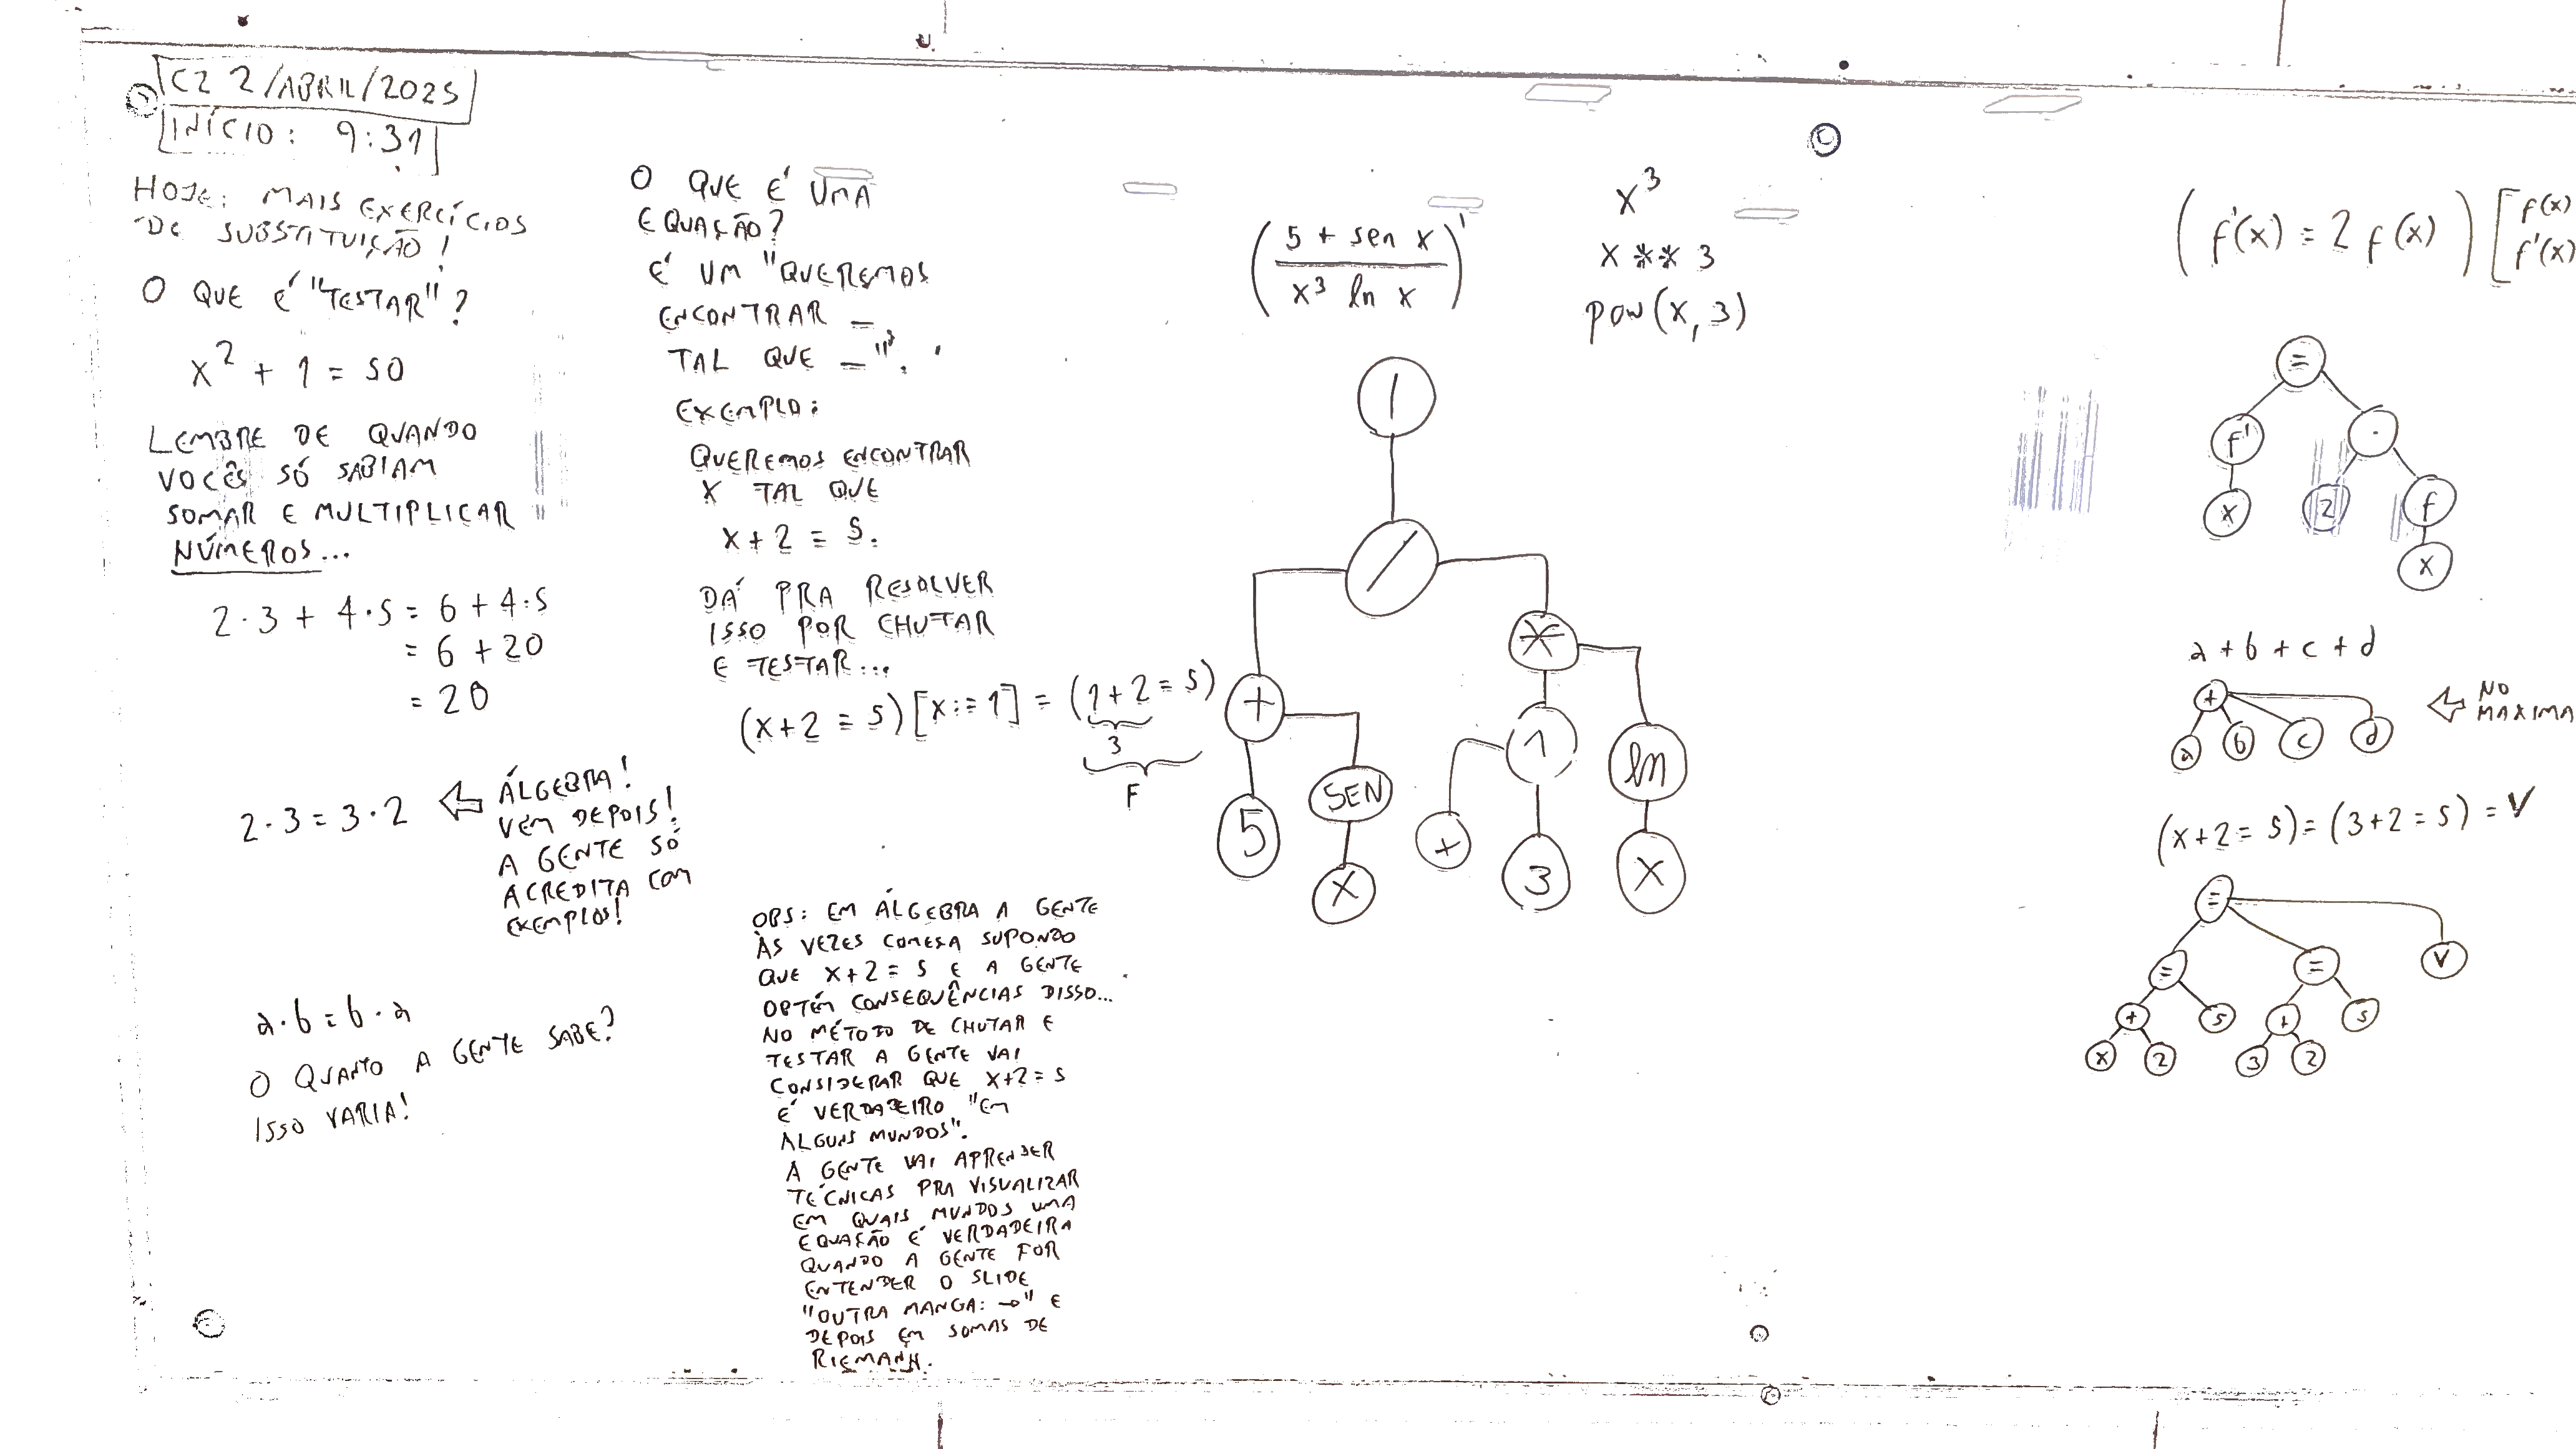 C2 2/ABRIL/2025
INÍCIO: 9:31
HOJE: MAIS EXERCÍCIOS
DE SUBSTITUIÇÃO!
O QUE É "TESTAR"?
x² + 1 = 50
LEMBRE DE QUANDO
VOCÊS SÓ SABIAM
SOMAR E MULTIPLICAR
NÚMEROS...
2·3 + 4·5 = 6 + 4·5
= 6 + 20
= 20
2·3 = 3·2 ⇐ ÁLGEBRA!
VEM DEPOIS!
A GENTE SÓ
ACREDITA COM
EXEMPLOS!
a·b = b·a
O QUANTO A GENTE SABE?
ISSO VARIA!
O QUE É UMA
EQUAÇÃO?
É UM "QUEREMOS
ENCONTRAR _
TAL QUE _".
EXEMPLO:
QUEREMOS ENCONTRAR
X TAL QUE
x + 2 = 5.
DÁ PRA RESOLVER
ISSO POR CHUTAR
E TESTAR...
(x+2 = 5)[x := 1] = (1+2 = 5)
3
F
OBS: EM ÁLGEBRA A GENTE
ÀS VEZES COMEÇA SUPONDO
QUE x+2 = 5 E A GENTE
OBTÉM CONSEQUÊNCIAS DISSO...
NO MÉTODO DE CHUTAR E
TESTAR A GENTE VAI
CONSIDERAR QUE x+2 = 5
É VERDADEIRO "EM
ALGUNS MUNDOS".
A GENTE VAI APRENDER
TÉCNICAS PRA VISUALIZAR
EM QUAIS MUNDOS UMA
EQUAÇÃO É VERDADEIRA
QUANDO A GENTE FOR
ENTENDER O SLIDE
"OUTRA MANGA: →" E
DEPOIS EM SOMAS DE
RIEMANN.
(5 + sen x / x³ ln x)'
x³
x ** 3
pow(x, 3)
'
/
*
+ ^ ln
5 SEN x 3 x
x
(f'(x) = 2 f(x)) [f(x)
f'(x)
=
f' ·
x 2 f
x
a + b + c + d
+ ⇐ NO
MAXIMA
a b c d
(x+2 = 5) = (3+2 = 5) = V
=
= = V
+ 5 + 5
x 2 3 2